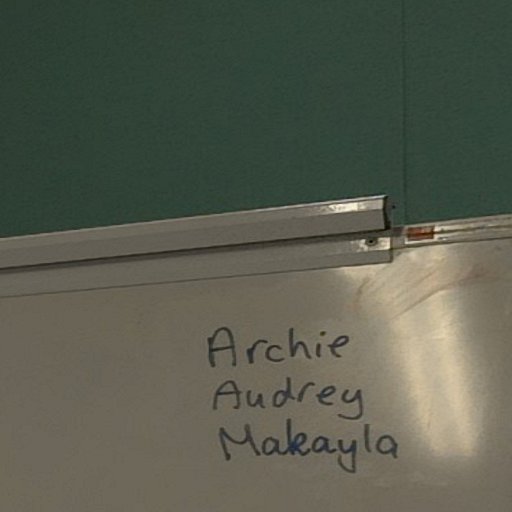 Archie
Audrey
Makayla